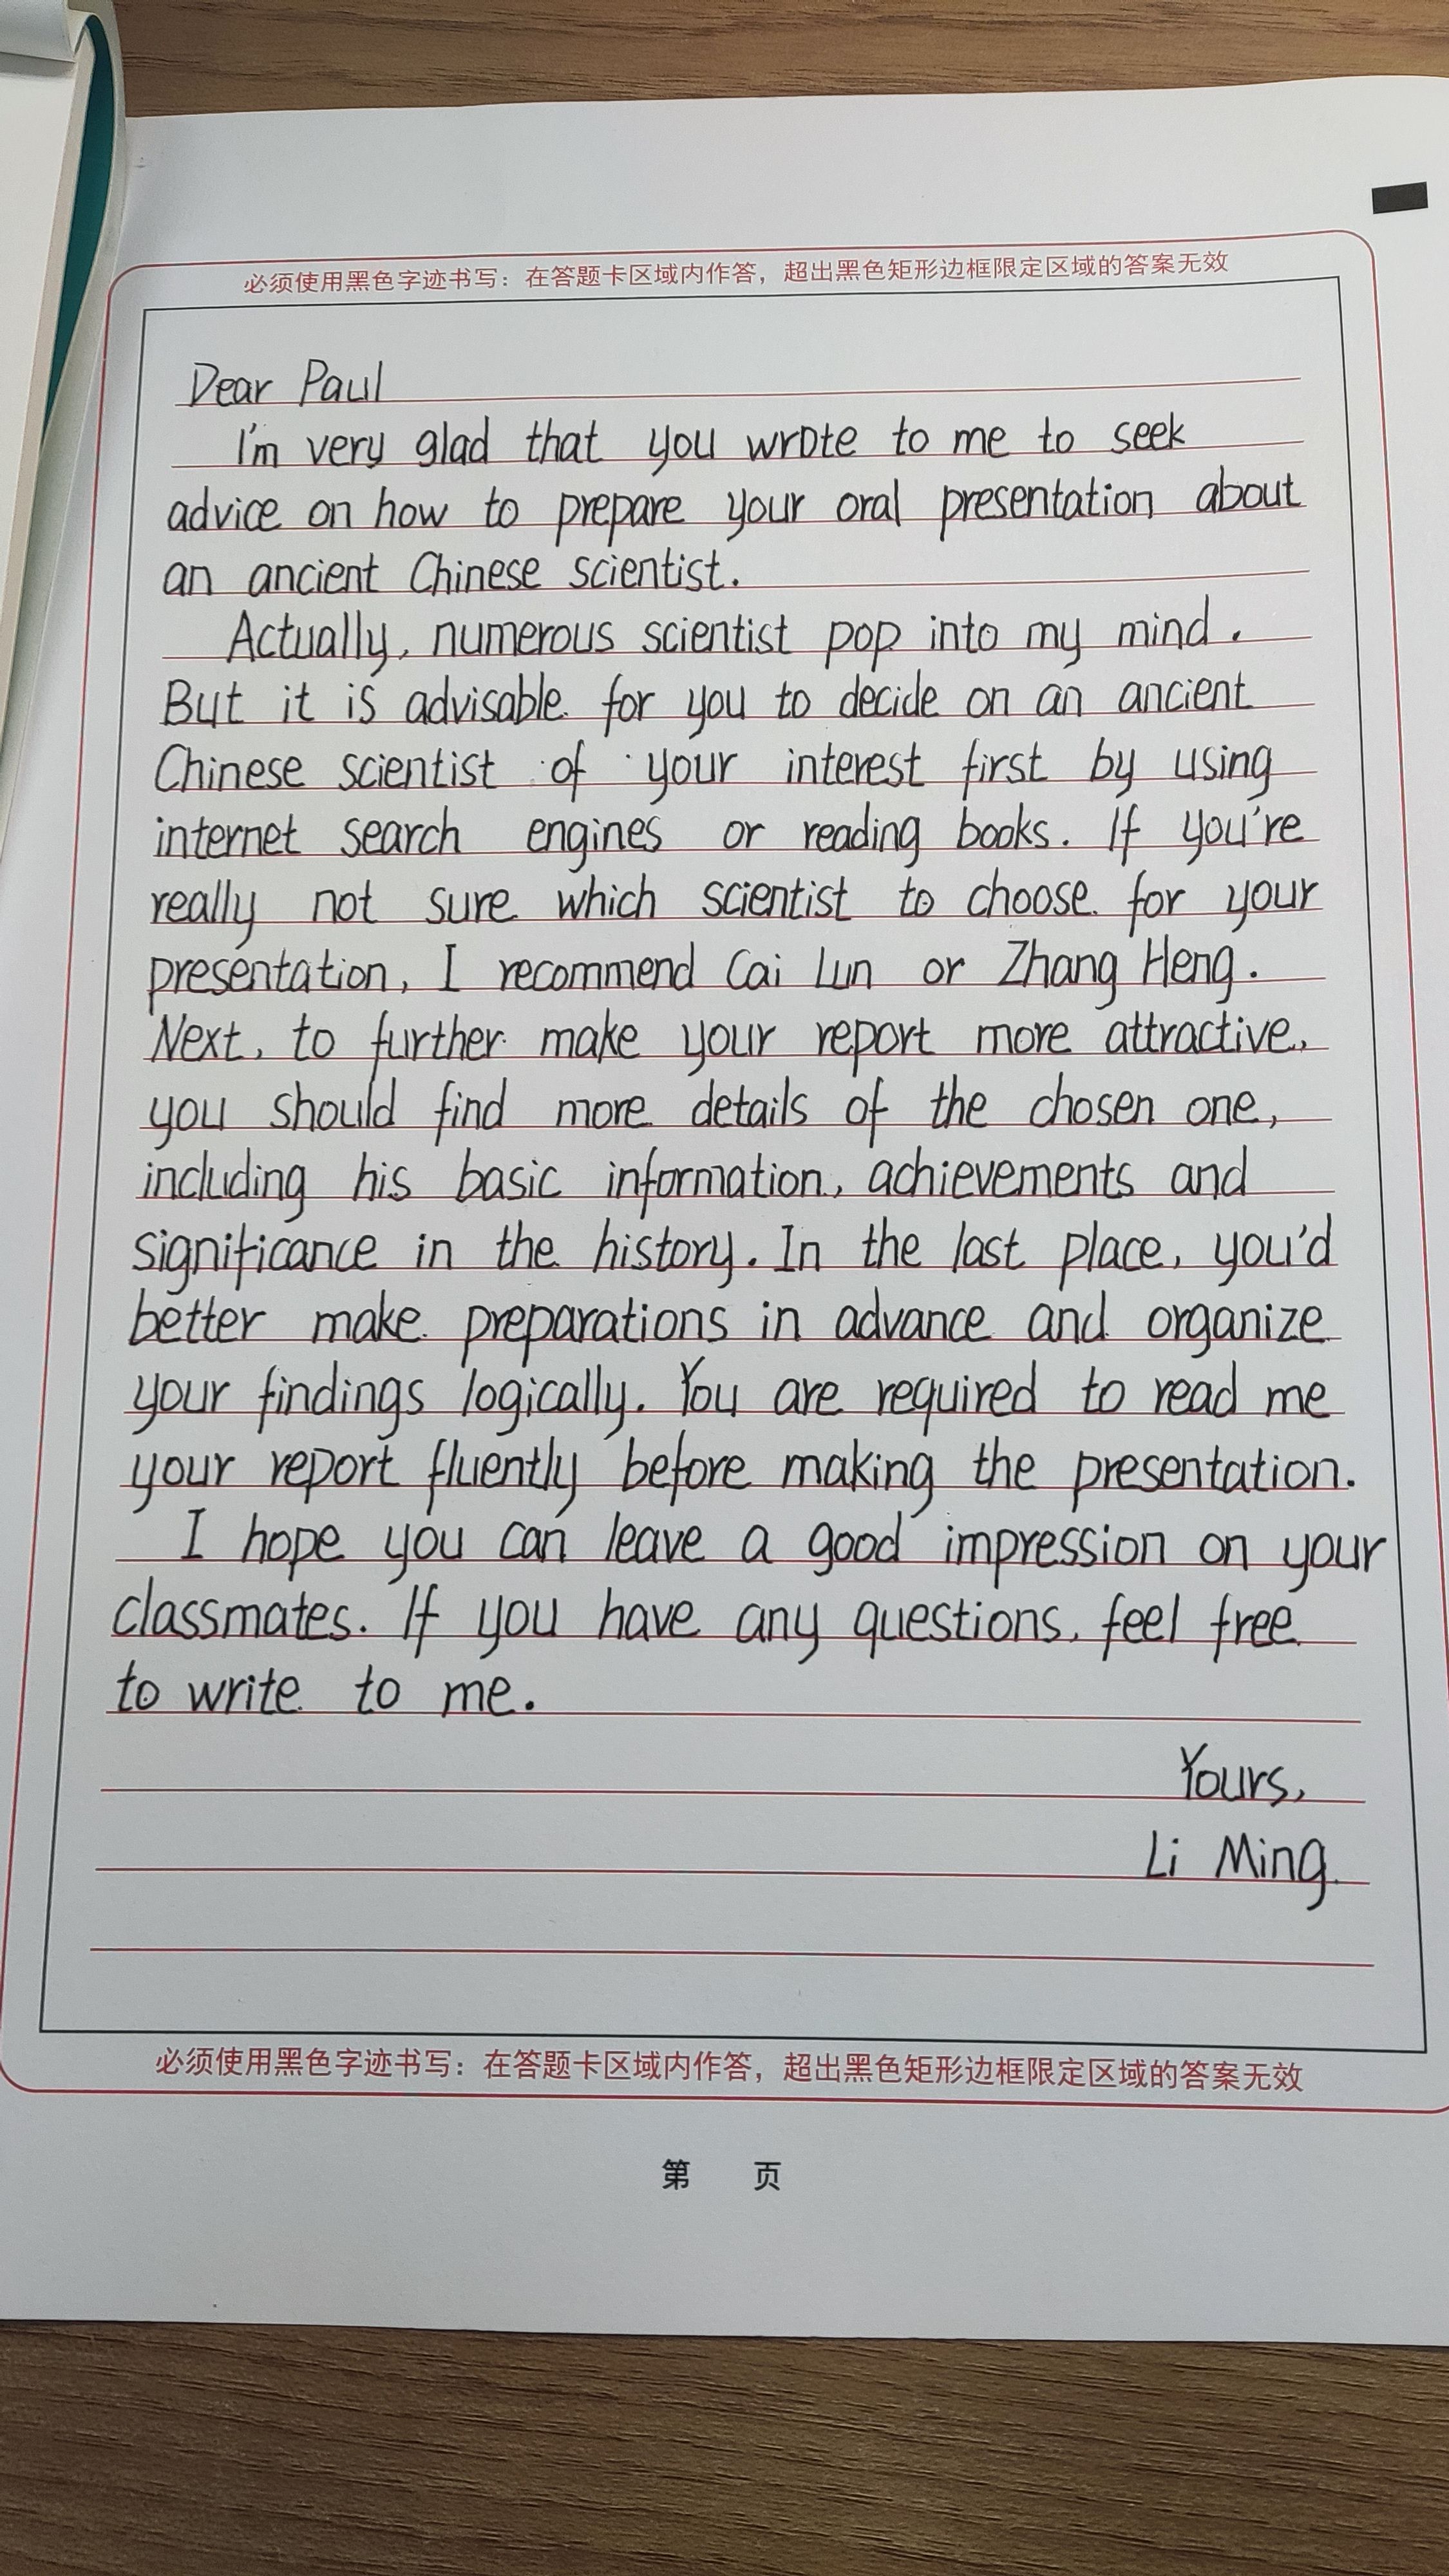 必须使用黑色字迹书写：在答题卡区域内作答，超出黑色矩形边框限定区域的答案无效
Dear Paul
I'm very glad that you wrote to me to seek
advice on how to prepare your oral presentation about
an ancient Chinese scientist.
Actually, numerous scientist pop into my mind.
But it is advisable for you to decide on an ancient
Chinese scientist of your interest first by using
internet search engines or reading books. If you're
really not sure which scientist to choose for your
presentation, I recommend Cai Lun or Zhang Heng.
Next, to further make your report more attractive,
you should find more details of the chosen one,
including his basic information, achievements and
significance in the history. In the last place, you'd
better make preparations in advance and organize
your findings logically. You are required to read me
your report fluently before making the presentation.
I hope you can leave a good impression on your
classmates. If you have any questions, feel free
to write to me.
Yours,
Li Ming
必须使用黑色字迹书写：在答题卡区域内作答，超出黑色矩形边框限定区域的答案无效
第 页